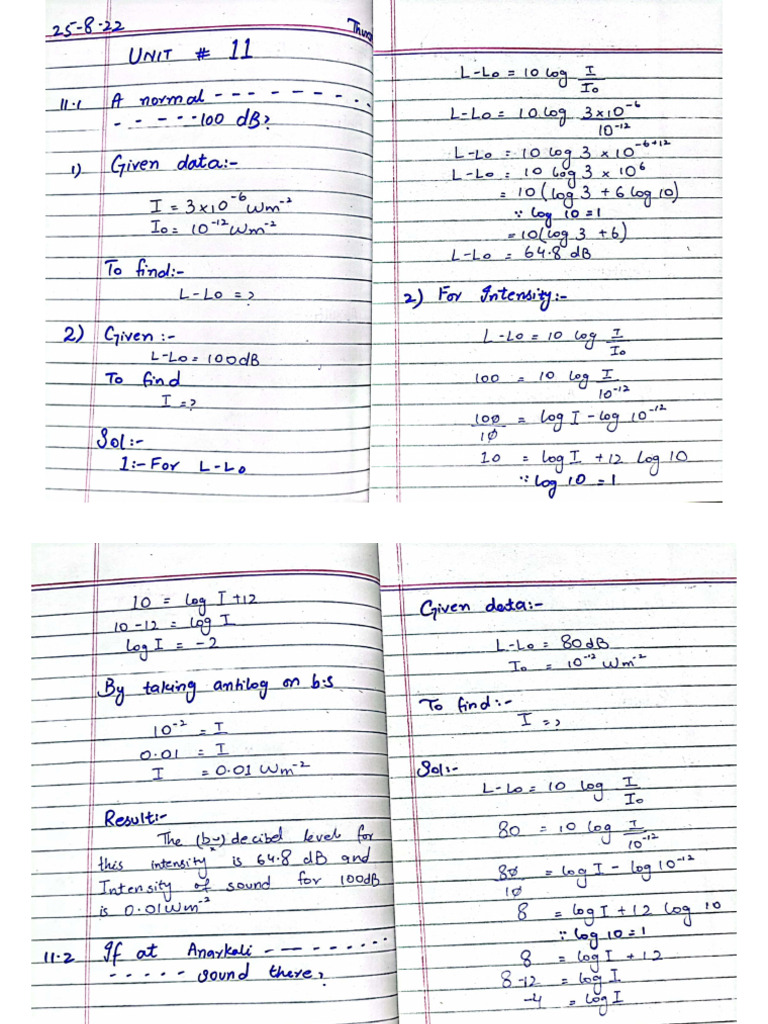 25-8-22
UNIT # 11
11.1 A normal --- - - - - - . .
- - - --100 dB?
1) Given data:-
I = 3×10⁻⁶ Wm⁻²
I₀ = 10⁻¹² Wm⁻²
To find:-
L-L₀ = ?
2) Given :-
L-L₀ = 100dB
To find
I = ?
Sol:-
1:- For L-L₀
L-L₀ = 10 log I/I₀
L-L₀ = 10 log 3×10⁻⁶/10⁻¹²
L-L₀ = 10 log 3 × 10⁻⁶⁺¹²
L-L₀ = 10 log 3 × 10⁶
= 10 (log 3 + 6 log 10)
∵ log 10 = 1
= 10(log 3 + 6)
L-L₀ = 64.8 dB
2) For Intensity:-
L-L₀ = 10 log I/I₀
100 = 10 log I/10⁻¹²
100/10 = log I - log 10⁻¹²
10 = log I + 12 log 10
∵ log 10 = 1
10 = log I + 12
10-12 = log I
log I = -2
By taking antilog on b.s
10⁻² = I
0.01 = I
I = 0.01 Wm⁻²
Result:-
The decibel level for
this intensity is 64.8 dB and
Intensity of sound for 100dB
is 0.01Wm⁻²
11.2 If at Anarkali -- - - - - . . .
- - - - - sound there?
Given data:-
L-L₀ = 80dB
I₀ = 10⁻¹² Wm⁻²
To find:-
I = ?
Sol:-
L-L₀ = 10 log I/I₀
80 = 10 log I/10⁻¹²
80/10 = log I - log 10⁻¹²
8 = log I + 12 log 10
∵ log 10 = 1
8 = log I + 12
8-12 = log I
-4 = log I